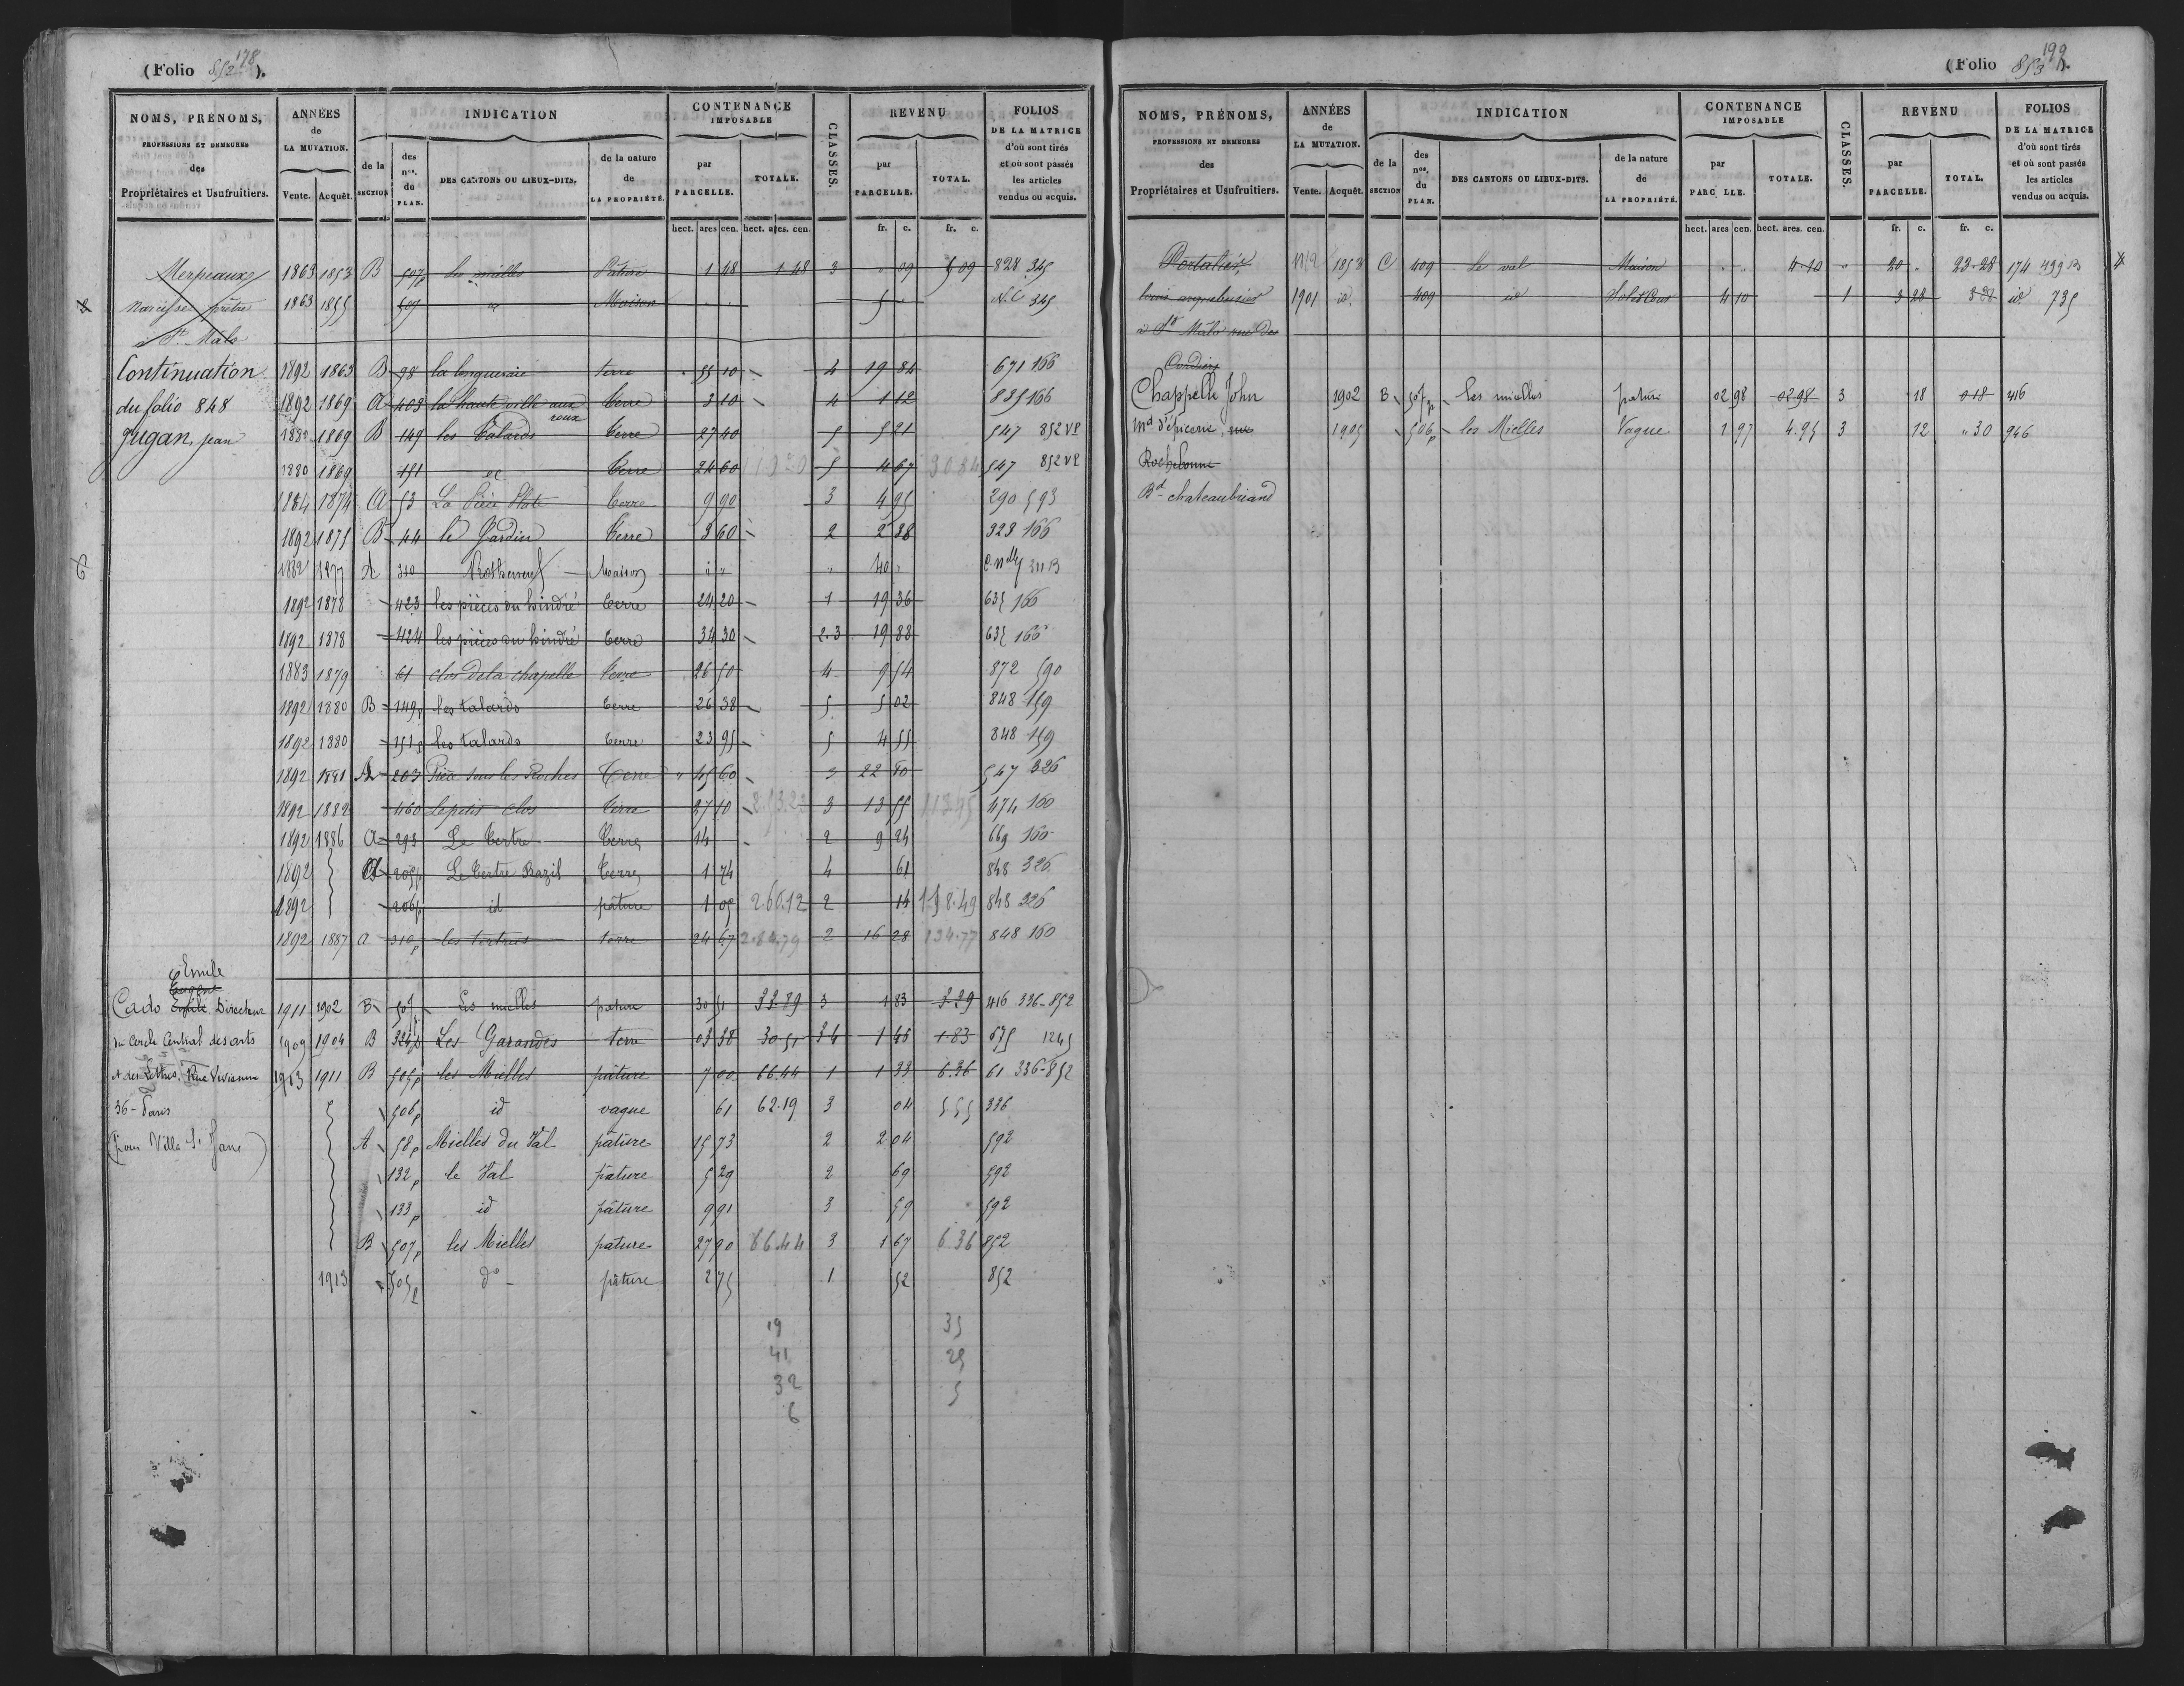 (Folio 852 178).
NOMS, PRÉNOMS, PROFESSIONS ET DEMEURES des Propriétaires et Usufruitiers.
ANNÉES de LA MUTATION. Vente. Acquêt.
INDICATION
de la SECTION
des nos. du PLAN.
DES CANTONS OU LIEUX-DITS.
de la nature de LA PROPRIÉTÉ.
CONTENANCE IMPOSABLE
par PARCELLE. TOTALE.
CLASSES.
REVENU
par PARCELLE. TOTAL.
FOLIOS DE LA MATRICE d'où sont tirés et où sont passés les articles vendus ou acquis.
hect. ares cen. hect. ares. cen. fr. c. fr. c.
Merpeaux 1863 1853 B 507p les mielles Pâture 1 48 1 48 3 " 09 5 09 828 345
Narcisse prêtre 1863 1855 507 id Maison " " 5 " N.C 345
à St. Malo
Continuation 1892 1863 B 98 la longueraie terre " 55 10 4 19 84 671 166
du folio 848 1892 1869 A 403 la haute ville aux roux terre 3 10 4 1 12 835 166
Jugan, jean 1880 1869 B 149 les Talards terre 27 40 5 5 21 547 852 vp
1880 1869 151 id terre 24 60 5 4 67 30 84 547 852 vp
1884 1874 A 53 La Pièce Plate terre 9 90 3 4 95 290 593
1892 1875 B 44 le Jardin terre 3 60 2 2 38 323 166
1882 1877 A 310 Rotheneuf Maison " " " 40 " C. nlle 311 B
1892 1878 423 les pièces du hindré terre 24 20 1 19 36 635 166
1892 1878 424 les pièces du hindré terre 34 30 2.3 19 88 635 166
1883 1879 61 clos de la chapelle terre 26 50 4 9 54 872 590
1892 1880 B 149p les talards terre 26 38 5 5 02 848 159
1892 1880 151p les talards terre 23 95 5 4 55 848 159
1892 1881 A 203 Pièce sous les Roches Terre " 45 60 3 22 80 547 326
1892 1882 460 Le petit clos terre 27 10 2.13.23 3 13 55 113.95 474 160
1892 1886 A 293 Le tertre terre 14 2 9 24 669 160
1892 A 205p Le tertre Bazil terre 1 74 4 61 848 326
1892 206p id pâture 1 05 2.60.12 2 14 118.49 848 326
1892 1887 a 310p les tertres terre 24 67 2.84.79 2 16 28 134.77 848 160
Emile
Eugène
Cado Emile Directeur 1911 1902 B 507p Les mielles pature 30 51 33.89 3 1 83 3.29 416 336-852
du Cercle Central des arts 1909 1904 B 324p Les Garandes terre 03 38 30.51 3 4 1 46 1.83 675 1245
et des Lettres, Rue Vivienne 1913 1911 B 505p les Mielles pâture 7 00 66.44 1 1 33 6.36 61 336-852
36 - Paris 506p id vague 61 62.19 3 04 5 55 336
(pour Villa St Jane) A 58p Mielles du Val pâture 15 73 2 2 04 592
132p le Val pâture 5 29 2 69 592
133p id pâture 9 91 3 59 592
B 507p les Mielles pature 27 90 66.44 3 1 67 6.36 852
1913 505p do pâture 2 75 1 52 852
19 35
41 25
32 5
6
(Folio 853 199).
NOMS, PRÉNOMS, PROFESSIONS ET DEMEURES des Propriétaires et Usufruitiers.
ANNÉES de LA MUTATION. Vente. Acquêt.
INDICATION
de la SECTION
des nos. du PLAN.
DES CANTONS OU LIEUX-DITS.
de la nature de LA PROPRIÉTÉ.
CONTENANCE IMPOSABLE
par PARC LLE. TOTALE.
CLASSES.
REVENU
par PARCELLE. TOTAL.
FOLIOS DE LA MATRICE d'où sont tirés et où sont passés les articles vendus ou acquis.
hect. ares cen. hect. ares. cen. fr. c. fr. c.
Portalier 1853 C 409 Le val Maison " " 4.10 " 20 " 23.28 174 499 B
louis arquebusier 1901 id. 409 id Sol et Cour 4 10 1 3 28 3 28 id 735
à St Malo rue des
Cordiers
Chappelle John 1902 B 507p les mielles pature 02 98 02 98 3 18 0 18 416
Md d'épicerie, rue 1905 506p les Mielles Vague 1 97 4.95 3 12 " 30 946
Rochebonne
Bd chateaubriand